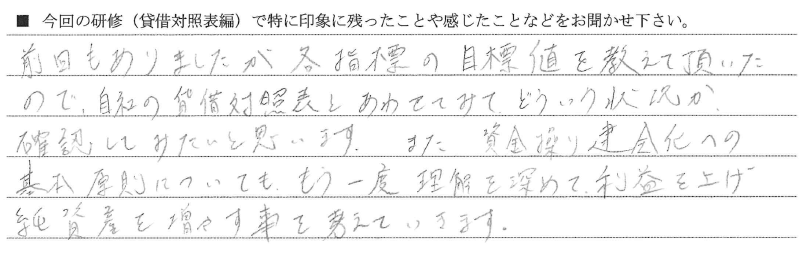 ■ 今回の研修（貸借対照表編）で特に印象に残ったことや感じたことなどをお聞かせ下さい。
前回もありましたが各指標の目標値を教えて頂いた
ので、自社の貸借対照表とあわせてみて、どういう状況か、
確認してみたいと思います。また資金操り健全化への
基本原則についても、もう一度理解を深めて、利益を上げ
純資産を増やす事を考えていきます。